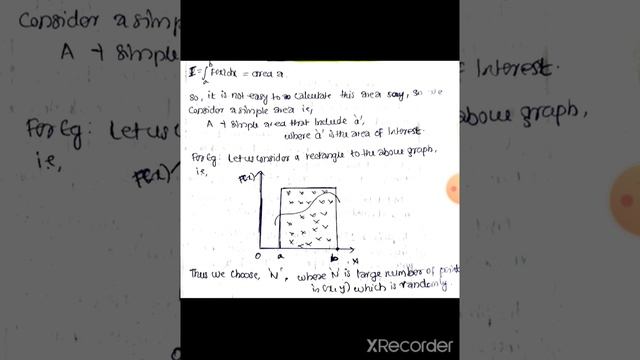 I = ∫ₐᵇ F(x) dx = area a
So, it is not easy to calculate this area say, so we
Consider a simple area i.e,
A → Simple area that include 'a',
where 'a' is the area of Interest.
For Eg: Let us consider a rectangle to the above graph,
i.e,
F(x)
0 a b x
Thus we choose 'N', where N is large number of points
in (x, y) which is randomly
XRecorder